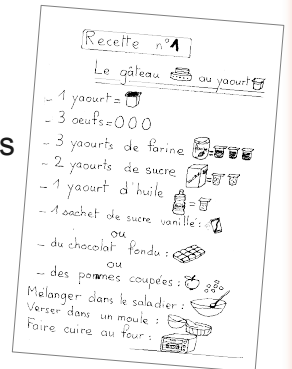 s
Recette n°1
Le gâteau au yaourt
- 1 yaourt =
- 3 oeufs = 000
- 3 yaourts de farine =
- 2 yaourts de sucre =
- 1 yaourt d'huile =
- 1 sachet de sucre vanillé :
ou
- du chocolat fondu :
ou
- des pommes coupées :
Mélanger dans le saladier :
Verser dans un moule :
Faire cuire au four :